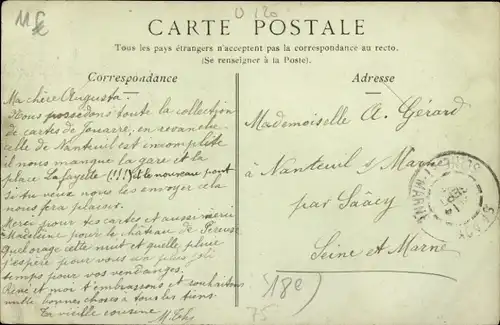 CARTE POSTALE
Tous les pays étrangers n'acceptent pas la correspondance au recto.
(Se renseigner à la Poste).
Correspondance
Adresse
Ma chère Augusta.
Nous possédons toute la collection
de cartes de Jouarre, en revanche
celle de Nanteuil est incomplète
il nous manque la gare et la
place Lafayette (!!!) et le nouveau pont
si tu veux nous les envoyer cela
nous fera plaisir.
Merci pour tes cartes et aussi merci
Madeleine pour le château de Pereuse
Quel orage cette nuit et quelle pluie
j'espère pour vous un plus joli
temps pour vos vendanges.
René et moi t'embrassons et souhaitons
mille bonnes choses à tous les tiens
Ta vieille cousine
Mademoiselle A. Gérard
à Nanteuil s/ Marne
par Saâcy
Seine et Marne
(18e)
75